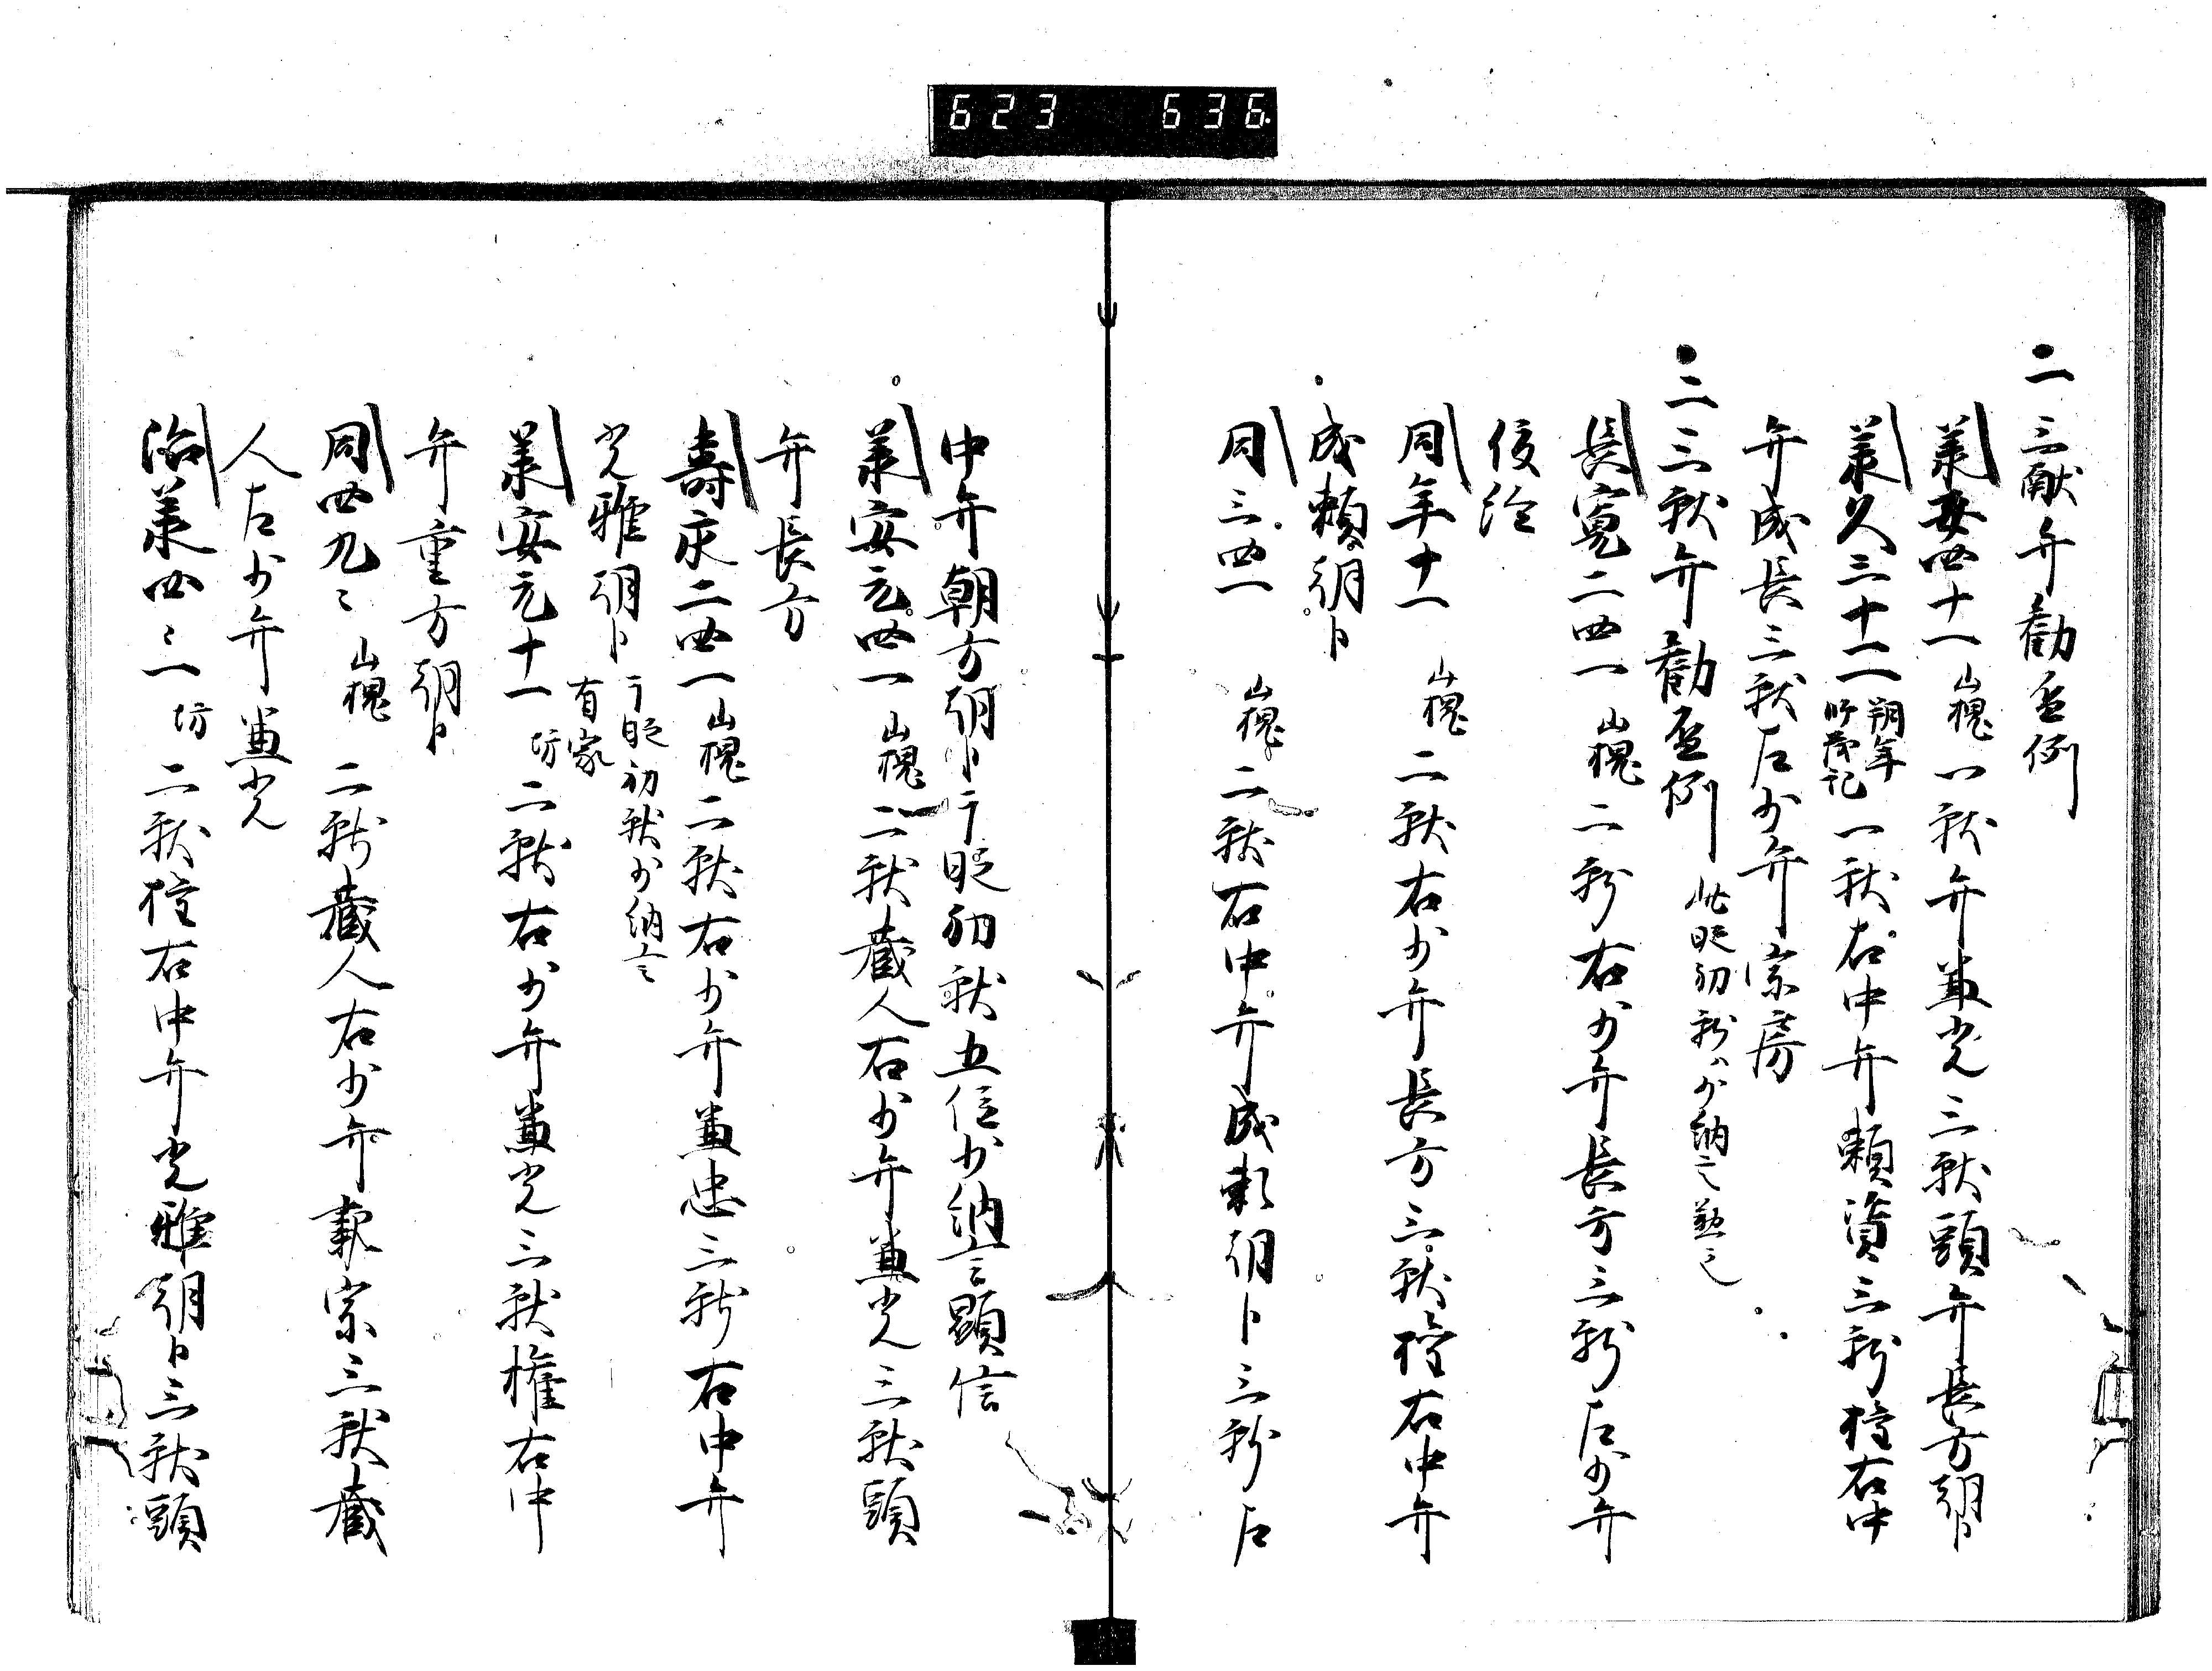 623 636
一三献弁勧盃例
承安四十一 山槐 一献弁兼光三献頭弁長方朝臣
承久三十一二 一献右中弁頼資三献権右中
弁成長三献左少弁宗房
一二三献弁勧盃例 此時初献少納言勤之
長寛二四一 山槐 二献右少弁長方三献左少弁
俊経
同年十一 山槐 二献右少弁長方三献権右中弁
成頼朝臣
同三四一 山槐 二献右中弁成頼朝臣三献左
中弁朝方朝臣于時初献五位少納言顕信
承安元四一 山槐 二献蔵人右少弁兼光三献頭
弁長方
寿永二四一 山槐 二献右少弁兼忠三献右中弁
光雅朝臣 于時初献少納言有家
承安元十一 坊 二献右少弁兼光三献権右中
弁重方朝臣
同四九 山槐 二献蔵人右少弁親宗三献蔵
人左少弁兼光
治承四一 坊 二献権右中弁光雅朝臣三献頭